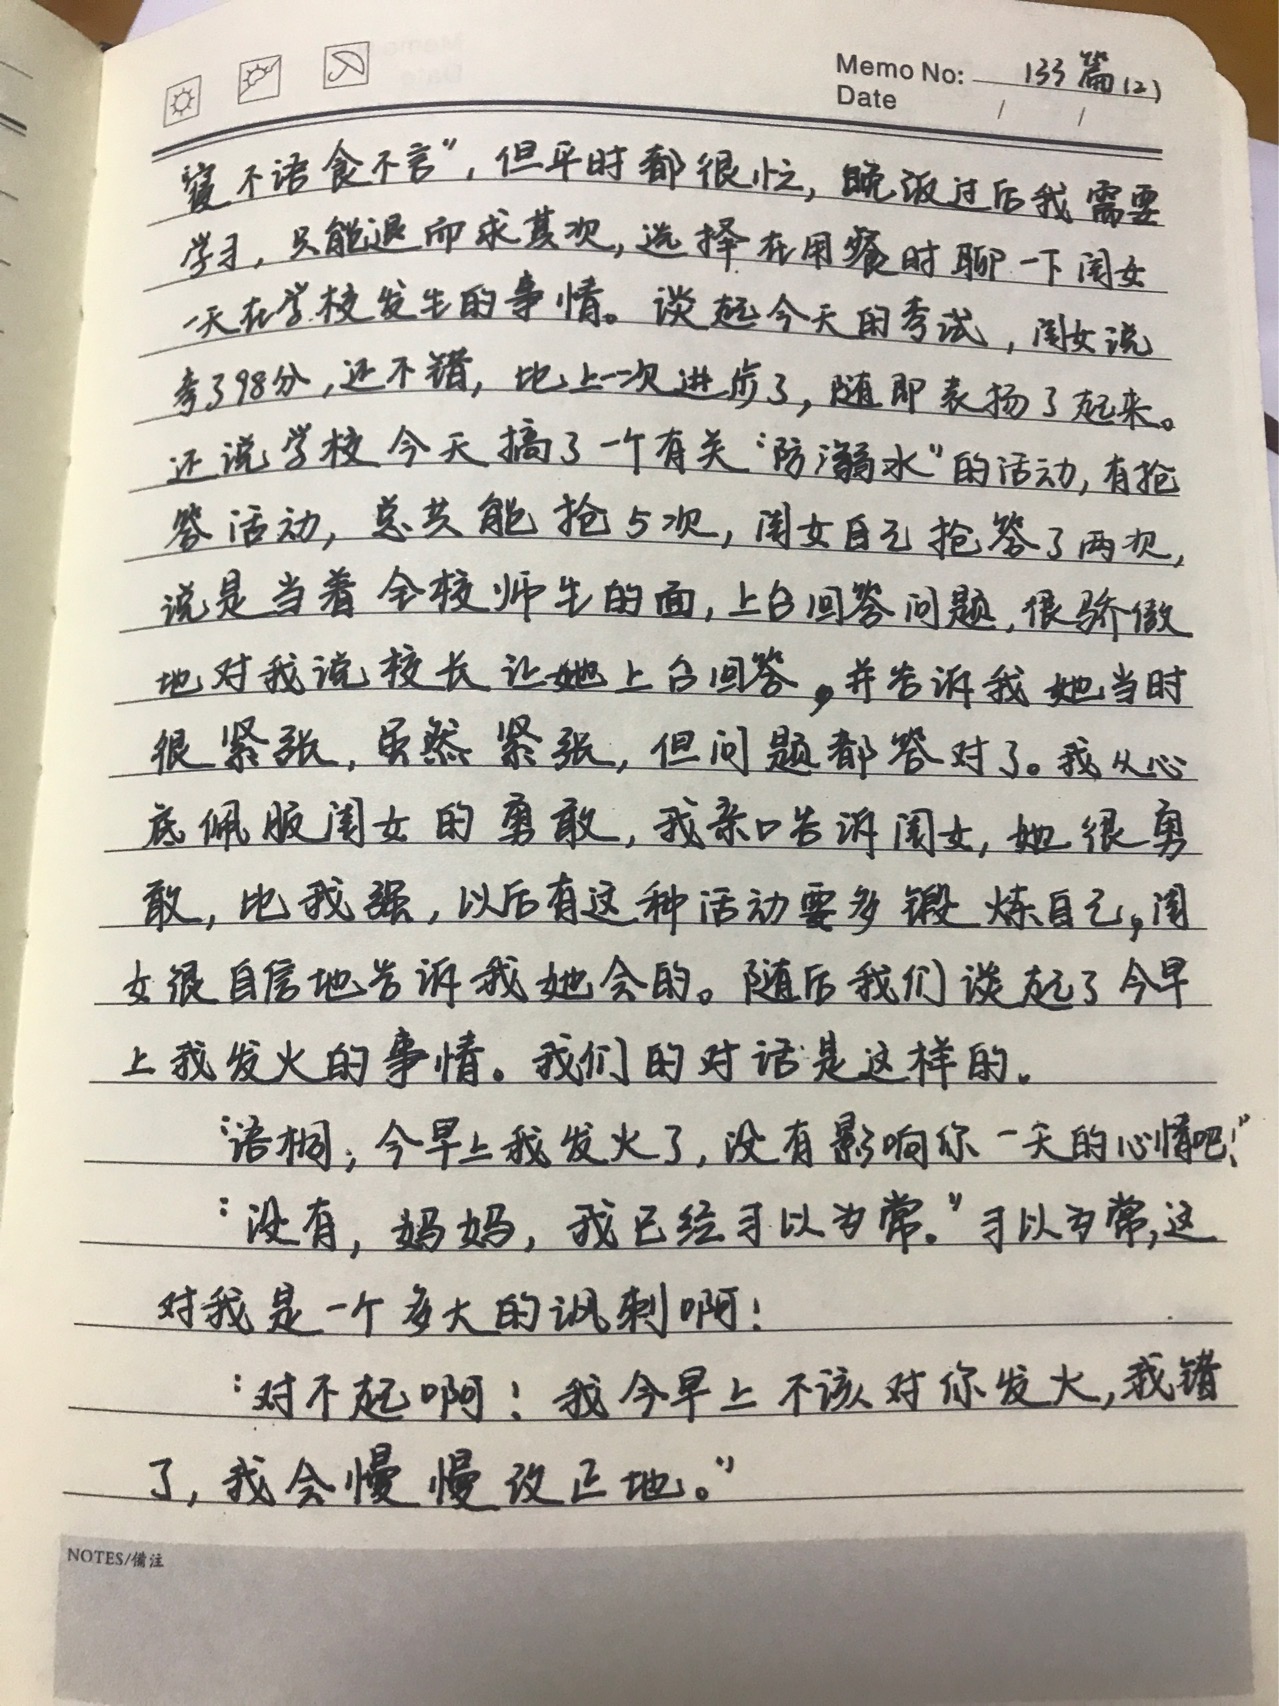 Memo No: 133篇(2)
Date / /
寝不语食不言”，但平时都很忙，晚饭过后我需要
学习，只能退而求其次，选择在用餐时聊一下闺女
一天在学校发生的事情。谈起今天的考试，闺女说
考了98分，还不错，比上一次进步了，随即表扬了起来。
还说学校今天搞了一个有关“防溺水”的活动，有抢
答活动，总共能抢5次，闺女自己抢答了两次，
说是当着全校师生的面，上台回答问题，很骄傲
地对我说校长让她上台回答，并告诉我她当时
很紧张，虽然紧张，但问题都答对了。我从心
底佩服闺女的勇敢，我亲口告诉闺女，她很勇
敢，比我强，以后有这种活动要多锻炼自己，闺
女很自信地告诉我她会的。随后我们谈起了今早
上我发火的事情。我们的对话是这样的。
“语桐；今早上我发火了，没有影响你一天的心情吧！”
“没有，妈妈，我已经习以为常。”习以为常，这
对我是一个多大的讽刺啊！
“对不起啊！我今早上不该对你发火，我错
了，我会慢慢改正地。”
NOTES/備注